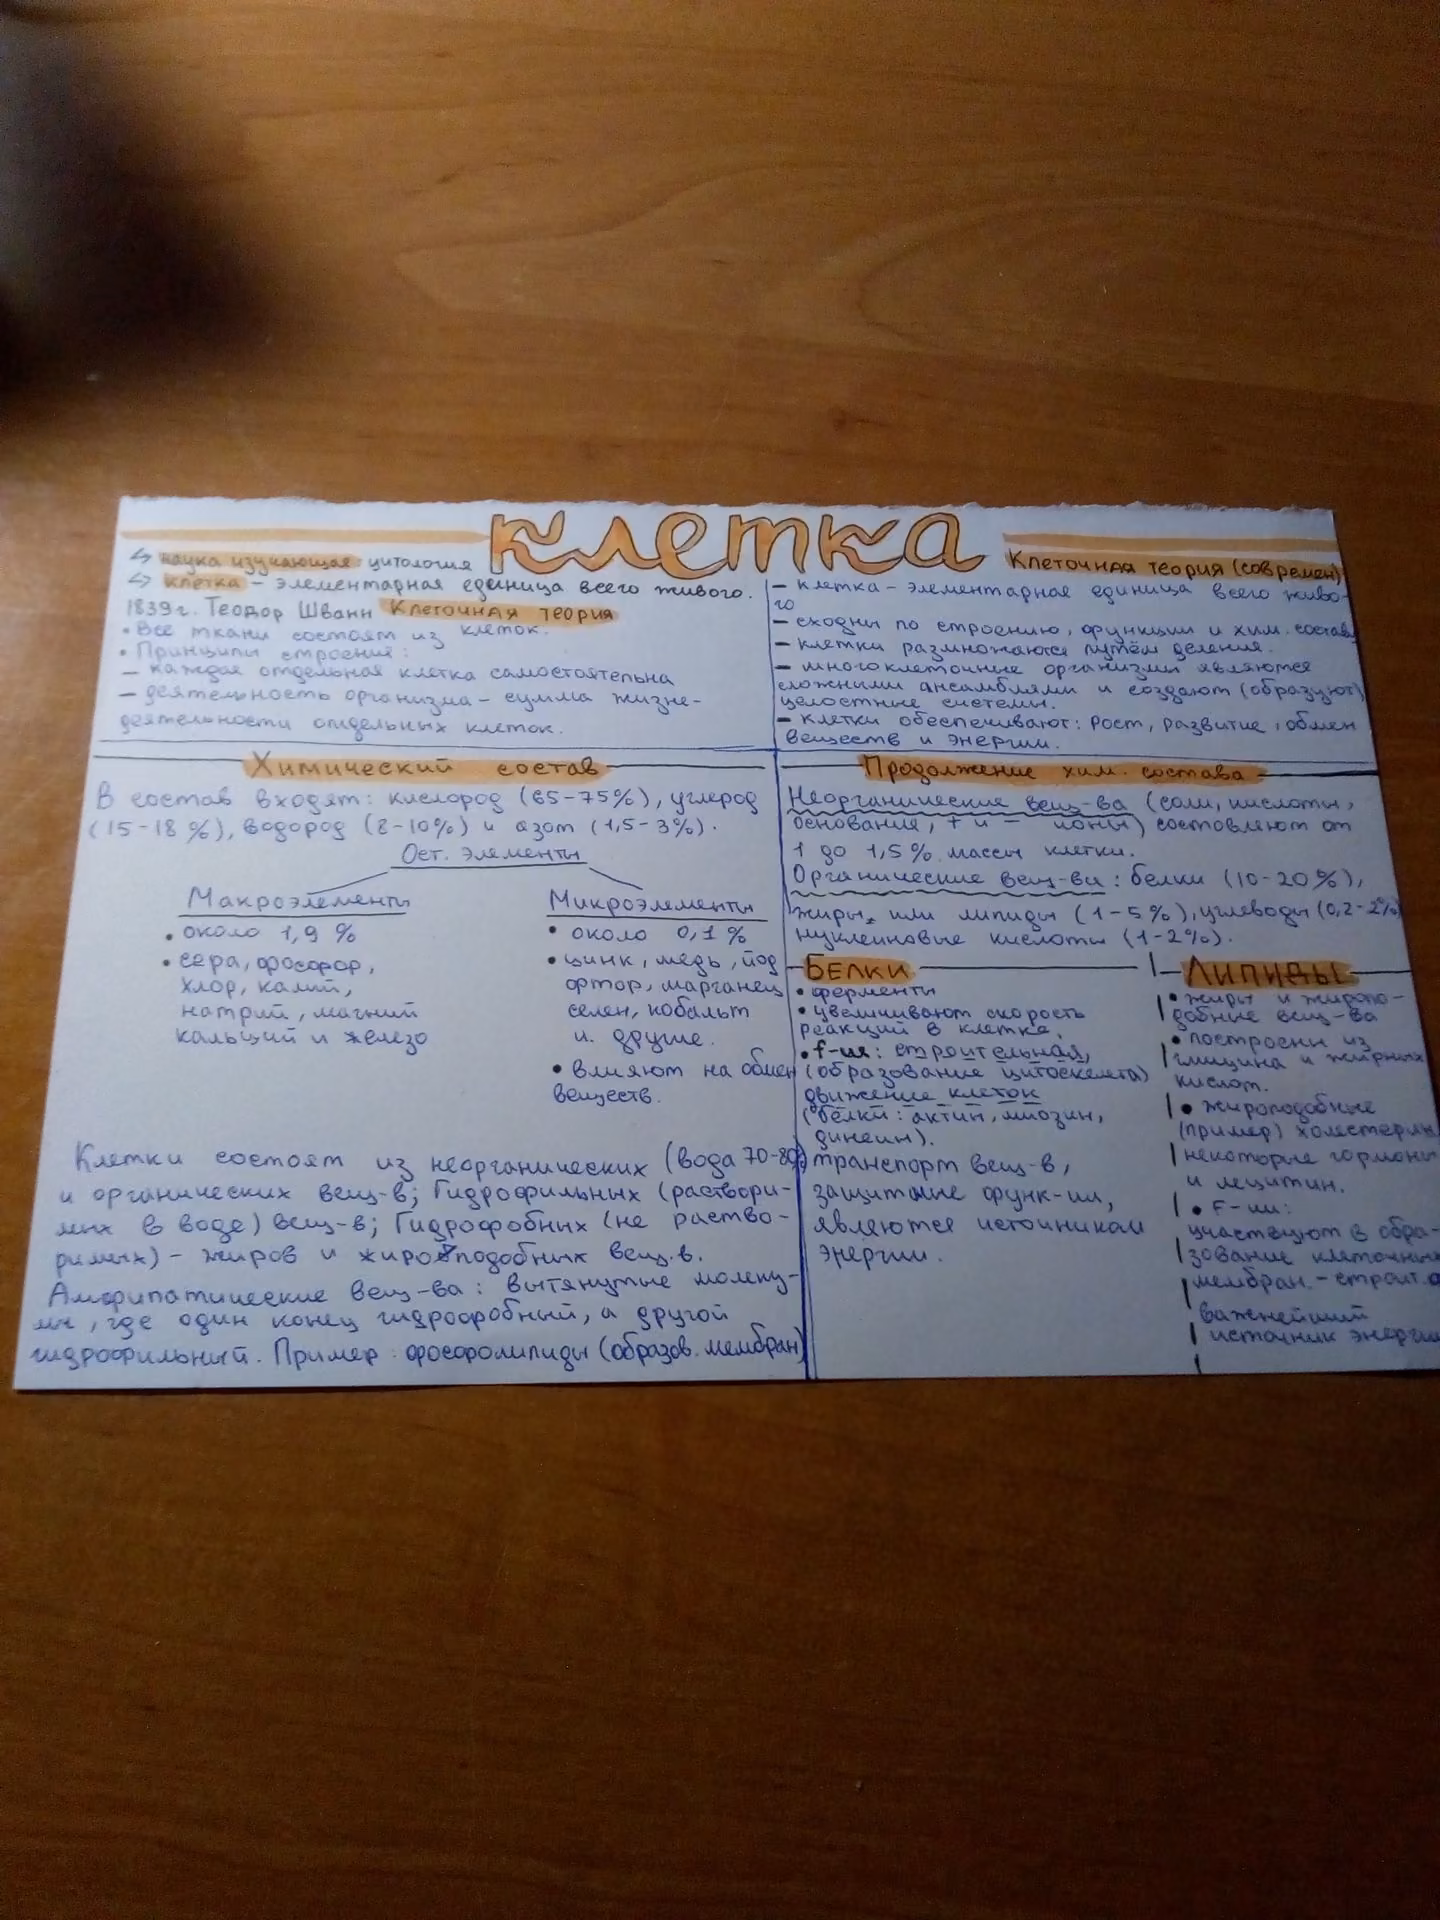 клетка
↳ наука изучающая: цитология
↳ клетка – элементарная единица всего живого.
1839 г. Теодор Шванн Клеточная теория
• Все ткани состоят из клеток.
• Принципы строения:
– каждая отдельная клетка самостоятельна
– деятельность организма – сумма жизне-
деятельности отдельных клеток.
Клеточная теория (современ)
– клетка – элементарная единица всего живо-
го
– сходны по строению, функции и хим. составу
– клетки размножаются путём деления.
– многоклеточные организмы являются
сложными ансамблями и создают (образуют)
целостные системы.
– клетки обеспечивают: рост, развитие, обмен
веществ и энергии.
Химический состав
В состав входят: кислород (65-75%), углерод
(15-18%), водород (8-10%) и азот (1,5-3%).
Ост. элементы
Макроэлементы
• около 1,9 %
• сера, фосфор,
хлор, калий,
натрий, магний
кальций и железо
Микроэлементы
• около 0,1 %
• цинк, медь, йод
фтор, марганец
селен, кобальт
и. другие.
• влияют на обмен
веществ.
Клетки состоят из неорганических (вода 70-80%)
и органических вещ-в; Гидрофильных (раствори-
мых в воде) вещ-в; Гидрофобных (не раство-
римых) – жиров и жироподобных вещ-в.
Амфипатические вещ-ва: вытянутые молеку-
лы, где один конец гидрофобный, а другой
гидрофильный. Пример: фосфолипиды (образов. мембран)
Продолжение хим. состава
Неорганические вещ-ва (соли, кислоты,
основание, + и – ионы) составляют от
1 до 1,5 % массы клетки.
Органические вещ-ва: белки (10-20%),
жиры, или липиды (1-5%), углеводы (0,2-2%)
нуклеиновые кислоты (1-2%).
БЕЛКИ
• ферменты
• увеличивают скорость
реакций в клетке.
• f-ия: строительная,
(образование цитоскелета)
движение клеток
(белки: актин, миозин,
динеин).
транспорт вещ-в,
защитные функ-ии,
являются источником
энергии.
ЛИПИДЫ
• жиры и жиропо-
добные вещ-ва
• построены из
глицина и жирных
кислот.
• жироподобные
(пример) холестерин
некоторые гормоны
и лецитин.
• F-ии:
участвуют в обра-
зование клеточных
мембран. – строит.
важнейший
источник энергии